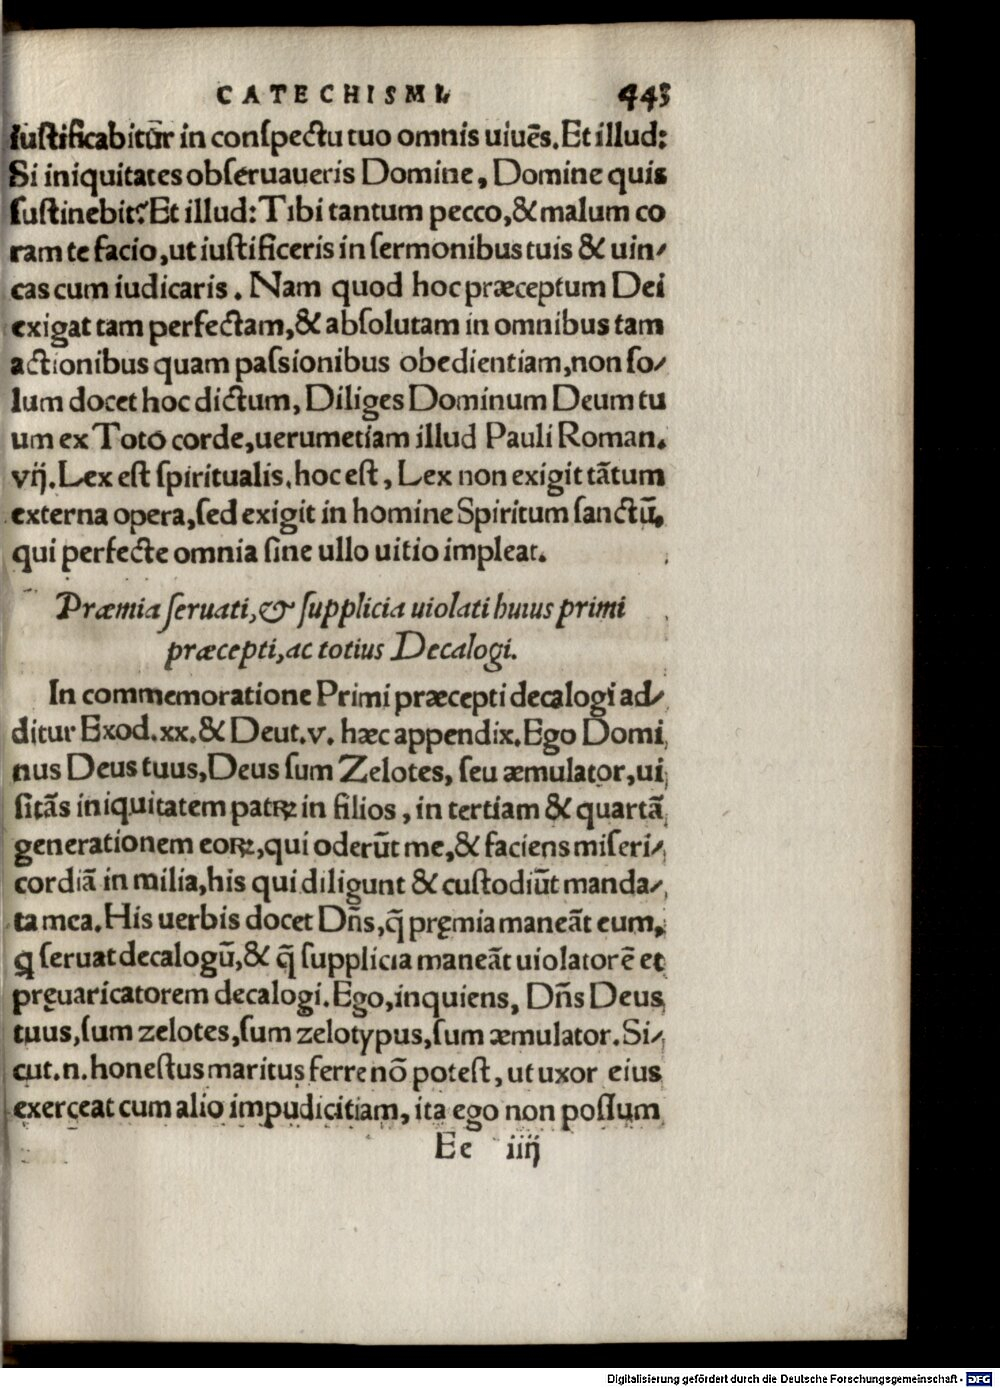 CATECHISMI. 443
iuſtificabitur̄ in conſpectu tuo omnis uiuēs. Et illud:
Si iniquitates obſeruaueris Domine, Domine quis
ſuſtinebit? Et illud: Tibi tantum pecco, & malum co
ram te facio, ut iuſtificeris in ſermonibus tuis & uin⸗
cas cum iudicaris. Nam quod hoc præceptum Dei
exigat tam perfectam, & abſolutam in omnibus tam
actionibus quam paſsionibus obedientiam, non ſo⸗
lum docet hoc dictum, Diliges Dominum Deum tu
um ex Toto corde, uerumetiam illud Pauli Roman.
vij. Lex eſt ſpiritualis. hoc eſt, Lex non exigit tātum
externa opera, ſed exigit in homine Spiritum ſanctū,
qui perfecte omnia ſine ullo uitio impleat.
Præmia ſeruati, & ſupplicia uiolati huius primi
præcepti, ac totius Decalogi.
In commemoratione Primi præcepti decalogi ad⸗
ditur Exod. xx. & Deut. v. hæc appendix. Ego Domi
nus Deus tuus, Deus ſum Zelotes, ſeu æmulator, ui
ſitās iniquitatem patrꝝ in filios, in tertiam & quartā
generationem eoꝝ, qui oderūt me, & faciens miſeri⸗
cordiā in milia, his qui diligunt & cuſtodiūt manda⸗
ta mea. His uerbis docet Dn̄s, q̄ pręmia maneāt eum,
ꝗ ſeruat decalogū, & q̄ ſupplicia maneāt uiolatorē et
pręuaricatorem decalogi. Ego, inquiens, Dn̄s Deus
tuus, ſum zelotes, ſum zelotypus, ſum æmulator. Si⸗
cut .n. honeſtus maritus ferre nō poteſt, ut uxor eius
exerceat cum alio impudicitiam, ita ego non poſſum
Ee iiij
Digitalisierung gefördert durch die Deutsche Forschungsgemeinschaft - DFG